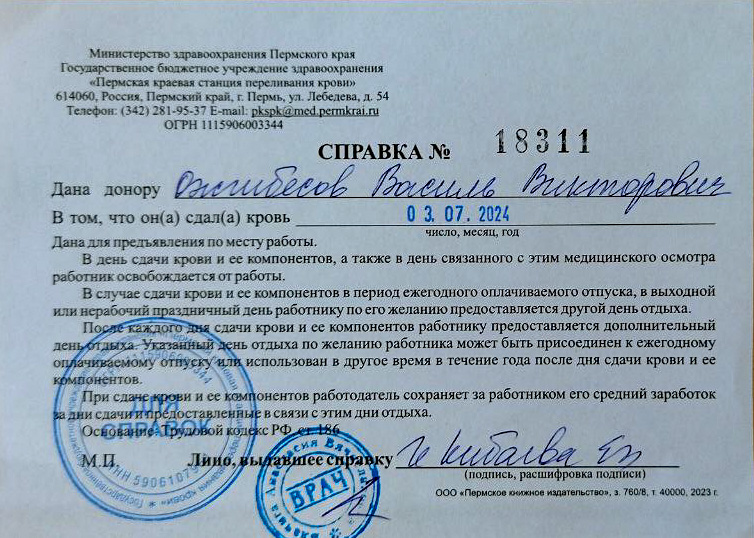 Министерство здравоохранения Пермского края
Государственное бюджетное учреждение здравоохранения
«Пермская краевая станция переливания крови»
614060, Россия, Пермский край, г. Пермь, ул. Лебедева, д. 54
Телефон: (342) 281-95-37 E-mail: pkspk@med.permkrai.ru
ОГРН 1115906003344
СПРАВКА № 18311
Дана донору Ожгибесов Василь Викторович
В том, что он(а) сдал(а) кровь 03.07.2024
число, месяц, год
Дана для предъявления по месту работы.
В день сдачи крови и ее компонентов, а также в день связанного с этим медицинского осмотра
работник освобождается от работы.
В случае сдачи крови и ее компонентов в период ежегодного оплачиваемого отпуска, в выходной
или нерабочий праздничный день работнику по его желанию предоставляется другой день отдыха.
После каждого дня сдачи крови и ее компонентов работнику предоставляется дополнительный
день отдыха. Указанный день отдыха по желанию работника может быть присоединен к ежегодному
оплачиваемому отпуску или использован в другое время в течение года после дня сдачи крови и ее
компонентов.
При сдаче крови и ее компонентов работодатель сохраняет за работником его средний заработок
за дни сдачи и предоставленные в связи с этим дни отдыха.
Основание: Трудовой кодекс РФ, ст. 186
ДЛЯ
СПРАВОК
М.П. Лицо, выдавшее справку
ВРАЧ
(подпись, расшифровка подписи)
ООО «Пермское книжное издательство», з. 760/8, т. 40000, 2023 г.